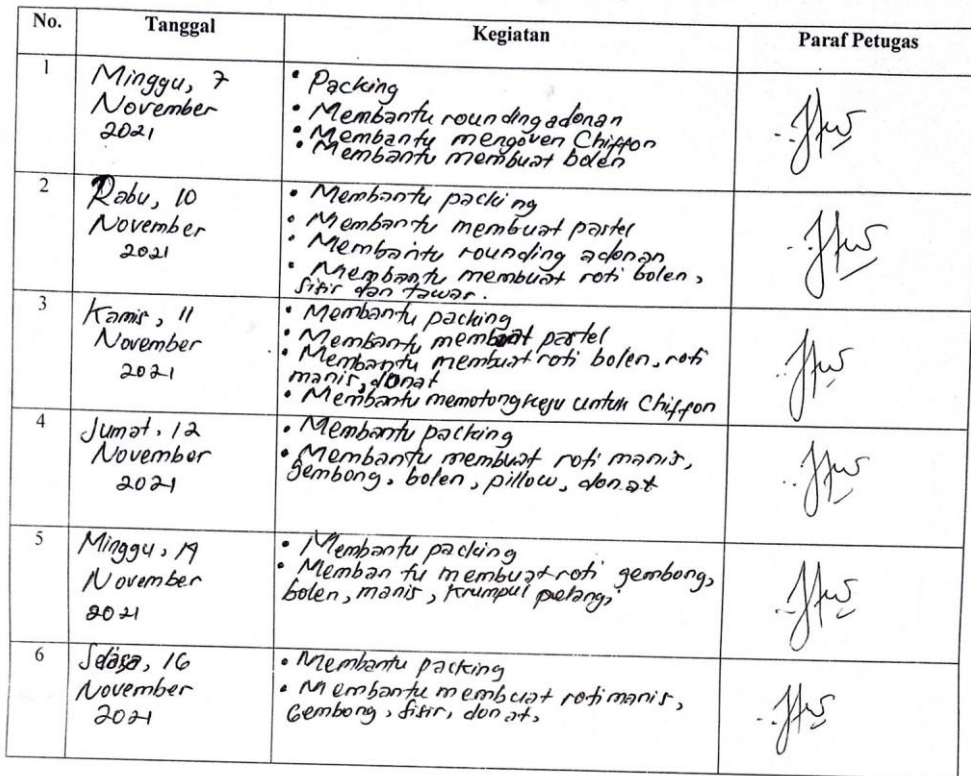 No. Tanggal Kegiatan Paraf Petugas
1 Minggu, 7 November 2021
• Packing
• Membantu rounding adonan
• Membantu mengoven Chiffon
• Membantu membuat bolen
2 Rabu, 10 November 2021
• Membantu packing
• Membantu membuat pastel
• Membantu rounding adonan
• Membantu membuat roti bolen,
sisir dan tawar.
3 Kamis, 11 November 2021
• Membantu packing
• Membantu membuat pastel
• Membantu membuat roti bolen, roti
manis, donat
• Membantu memotong keju untuk Chiffon
4 Jumat, 12 November 2021
• Membantu packing
• Membantu membuat roti manis,
gembong, bolen, pillow, donat
5 Minggu, 14 November 2021
• Membantu packing
• Membantu membuat roti gembong,
bolen, manis, krumpul pelangi
6 Selasa, 16 November 2021
• Membantu packing
• Membantu membuat roti manis,
Gembong, sisir, donat,